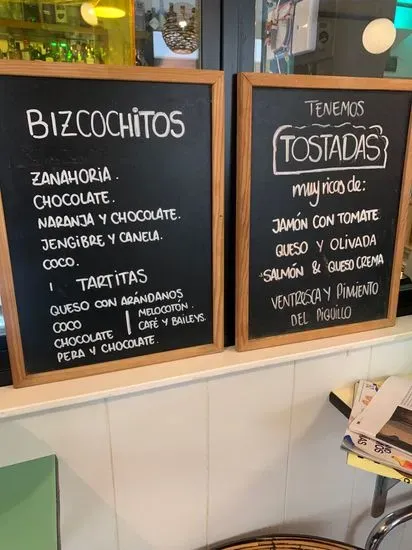 BIZCOCHITOS
ZANAHORIA.
CHOCOLATE.
NARANJA Y CHOCOLATE.
JENGIBRE Y CANELA.
COCO.
Y TARTITAS
QUESO CON ARÁNDANOS
COCO
CHOCOLATE
PERA Y CHOCOLATE.
MELOCOTÓN.
CAFÉ Y BAILEYS.
TENEMOS
TOSTADAS
muy ricas de:
JAMÓN CON TOMATE
QUESO Y OLIVADA
SALMÓN & QUESO CREMA
VENTRESCA Y PIMIENTO
DEL PIQUILLO